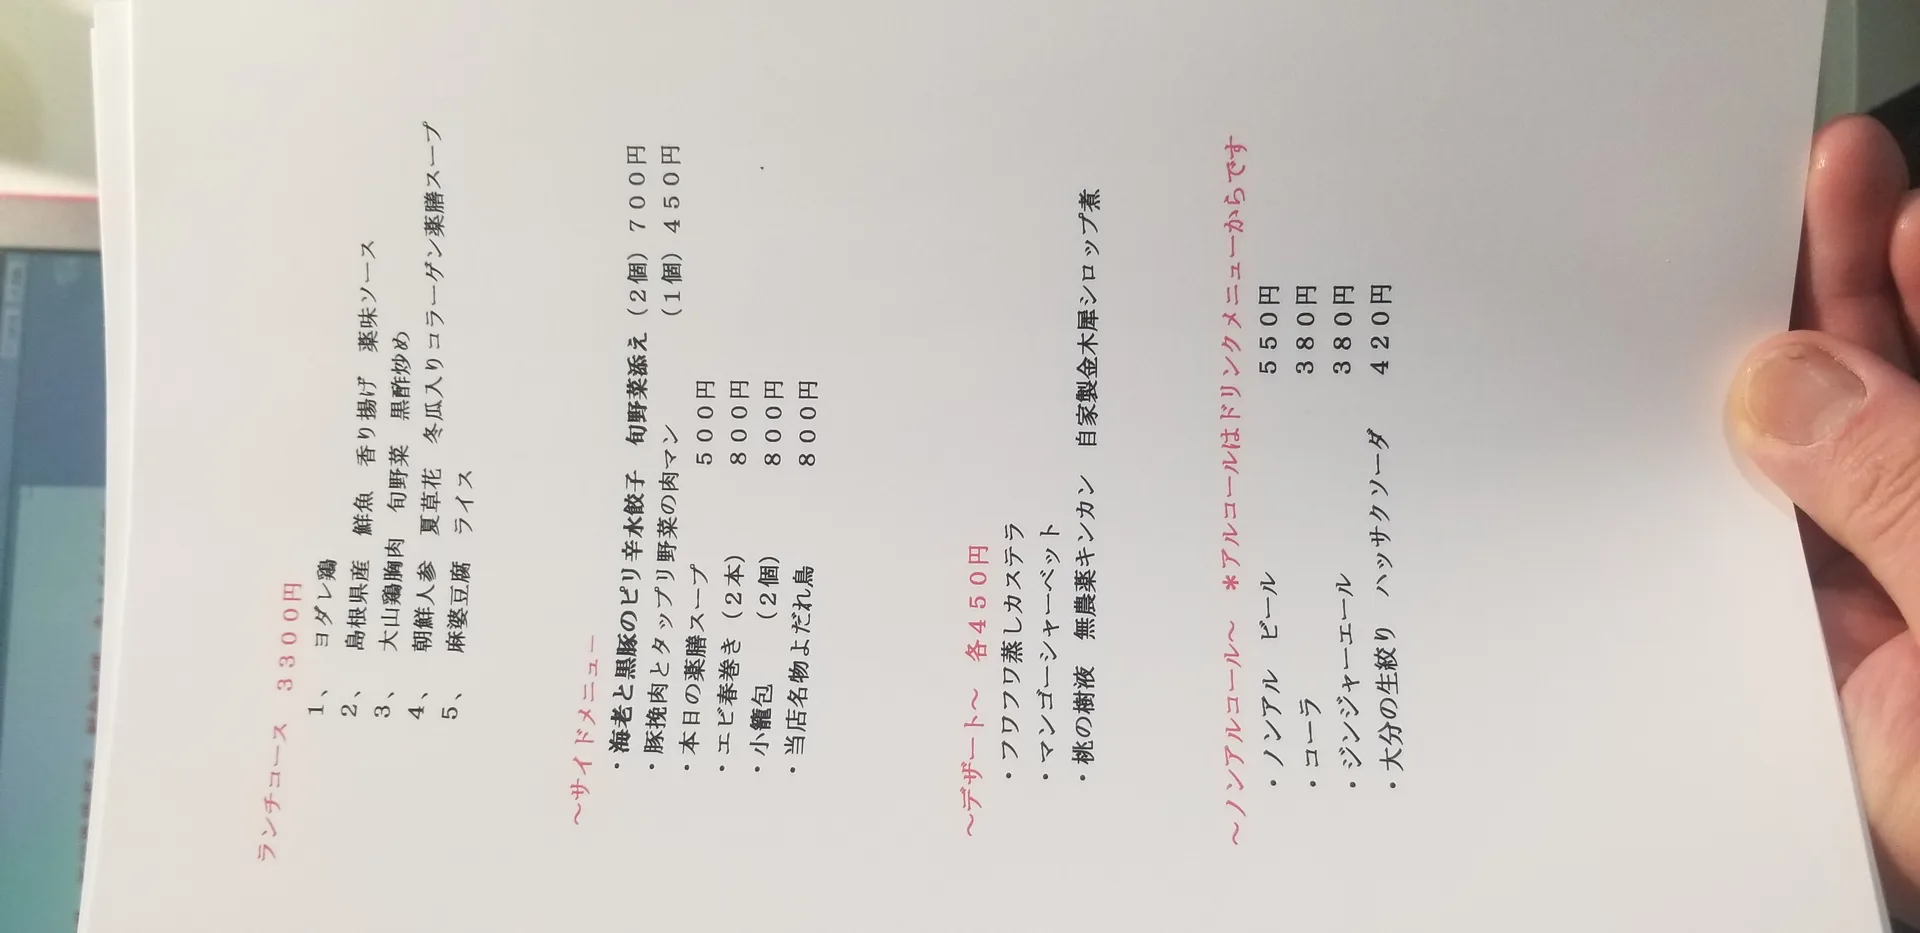 ランチコース ３３００円
１、 ヨダレ鶏
２、 島根県産 鮮魚 香り揚げ 薬味ソース
３、 大山鶏胸肉 旬野菜 黒酢炒め
４、 朝鮮人参 夏草花 冬瓜入りコラーゲン薬膳スープ
５、 麻婆豆腐 ライス
～サイドメニュー
・海老と黒豚のピリ辛水餃子 旬野菜添え（２個）７００円
・豚挽肉とタップリ野菜の肉マン （１個）４５０円
・本日の薬膳スープ ５００円
・エビ春巻き（２本） ８００円
・小籠包 （２個） ８００円
・当店名物よだれ鳥 ８００円
～デザート～ 各４５０円
・フワフワ蒸しカステラ
・マンゴーシャーベット
・桃の樹液 無農薬キンカン 自家製金木犀シロップ煮
～ノンアルコール～ ＊アルコールはドリンクメニューからです
・ノンアル ビール ５５０円
・コーラ ３８０円
・ジンジャーエール ３８０円
・大分の生絞り ハッサクソーダ ４２０円